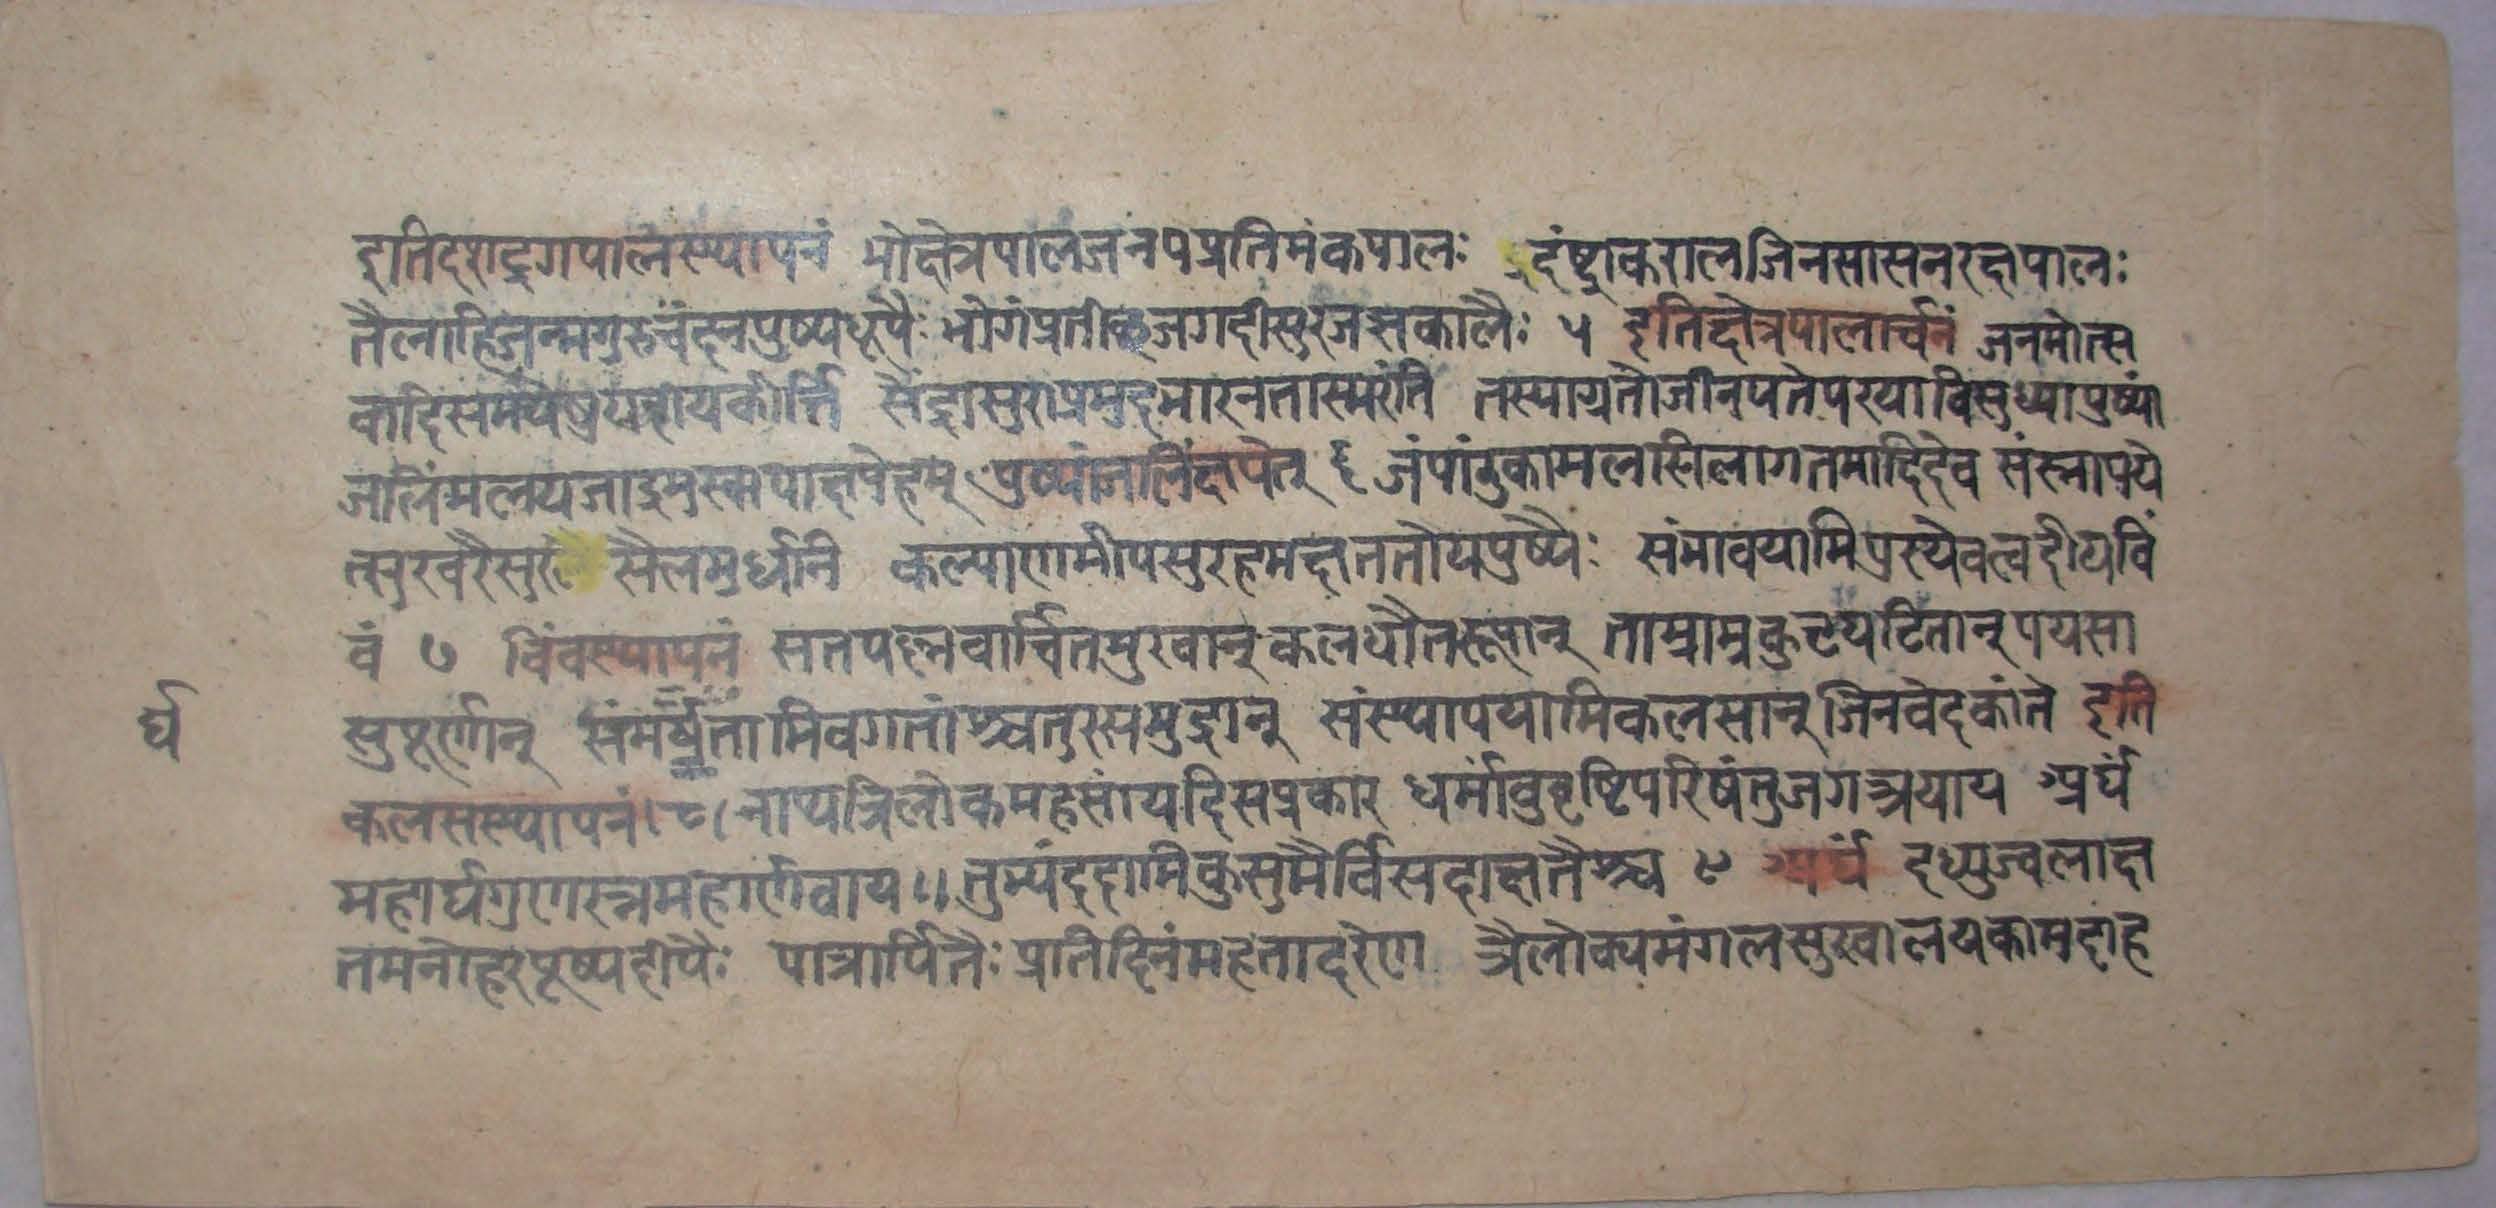 इतिदशद्रुगपालस्थापनं भोक्षेत्रपालजनपप्रतिमंकपालः दंष्ट्राकरालजिनसासनरक्षपालः
तैलाहिजन्मगुरुचंदनपुष्पधूपैः भोगंप्रतीक्षजगदीसुरजज्ञकालैः ५ इतिक्षेत्रपालार्चनं जनमोत्स
वादिसमयेषुयदीयकीर्त्ति सेंद्रासुराप्रमुदभारनतास्मरंति तस्याग्रतोजीनपतेपरयाविसुध्यापुष्पां
जलिंमलयजाद्र पुष्पांजलिंक्षपेत् ६ जंपांडुकामलसिलागतमादिदेव संस्नापये
त्सुरवरैसुर सैलमुर्धनि कल्याणमीपसुरहमक्षततोयपुष्पैः संभावयामिप्रस्यैवत्वदीयविं
वं ७ विंवस्थापनं सतपल्लवार्चितमुखान् कलधौतरूपान् ताम्रा घटितान् पयसा
सुपूर्णान् तामिवगतांश्चतुरसमुद्रान् संस्थापयामिकलसान् जिनवेदकांते इति
र्घ
कलसस्थापनं।८। त्रिलोकमहसांयदिसप्रकार धर्मांवुवृष्टिपरिषंतुजगत्रयाय अर्घं
महार्घगुणरत्नमहार्णवाय।। तुभ्यंददामिकुसुमैर्विसदाक्षतैश्च ९ अर्घं दध्युज्वलाक्ष
तमनोहरपूष्पदीपैः पात्रार्पितैः प्रतिदिनंमहतादरेण त्रैलोक्यमंगलसुखालयकामदाह